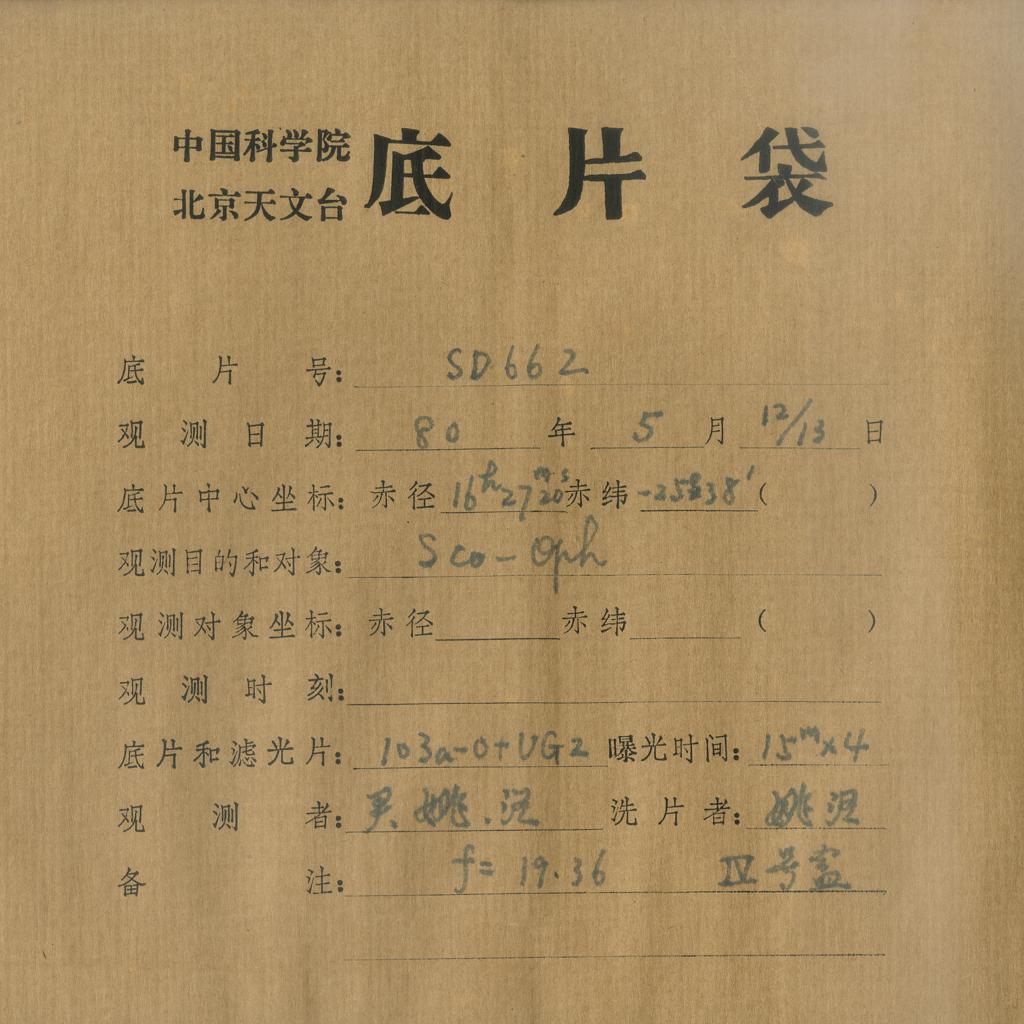 中国科学院
北京天文台
底片袋
底片号: SD662
观测日期: 80年5月12/13日
底片中心坐标: 赤径16h27m20s赤纬-25°38′( )
观测目的和对象: Sco-Oph
观测对象坐标: 赤径 赤纬 ( )
观测时刻:
底片和滤光片: 103a-O+UG2 曝光时间: 15m×4
观测者: 尹.姚. 洗片者: 姚
备注: f=19.36 IV号盒